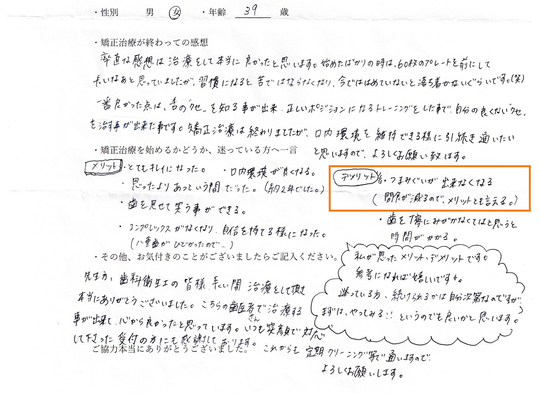 ・性別　男　女　・年齢　39　歳
・矯正治療が終わっての感想
率直な感想は治療をして本当に良かったと思います。始めたばかりの時は、60枚のプレートを前にして
長いなあと思っていましたが、習慣になると苦ではならなくなり、今でははめていないと落ち着かないぐらいです。(笑)
一番良かった点は、舌のクセを知る事が出来、正しいポジションになるトレーニングをした事で、自分の良くないクセ
を治す事が出来た事です。矯正治療は終わりましたが、口内環境を維持できる様に引続き通いたい
と思いますので、よろしくお願い致します。
・矯正治療を始めるかどうか、迷っている方へ一言
メリット ・とてもキレイになった。 ・口内環境が良くなる。
・思ったよりあっという間だった。(約2年でした。)
・歯を見せて笑う事ができる。
・コンプレックスがなくなり、自信を持てる様になった。
(八重歯がひどかったので…)
デメリット ・つまみぐいが出来なくなる
(間食が減るので、メリットとも言える。)
・歯を丁寧にみがかなくてはと思うと
時間がかかる。
私が思ったメリット・デメリットです。
参考になれば嬉しいです。
迷っている方、続けられるかは自分次第なのですが、
まずは、やってみる!!というのでも良いかと思います。
・その他、お気付きのことがございましたらご記入ください。
先生方、歯科衛生士の皆様 長い間 治療をして頂き
本当にありがとうございました。こちらの歯医者さんで治療する
事が出来て、心から良かったと思っています。いつも笑顔で対応
して下さった受付の方にも感謝しております。
これからも定期クリーニング等で通いますので
よろしくお願いします。
ご協力本当にありがとうございました。